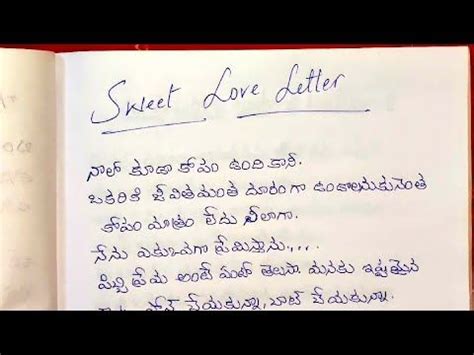 Sweet Love Letter
నాలో కూడా కోపం ఉంది కానీ.
ఒకరికి జీవితమంత దూరంగా ఉండాలనుకునెంత
కోపం మాత్రం లేదు నీలాగా.
నేను ఎకువగా ప్రేమిస్తాను....
పిచ్చి ప్రేమ అంటే ఏంటో తెలుసా మనకు ఇష్టమైన
చేయకున్నా, చాట్ చేయకున్నా.